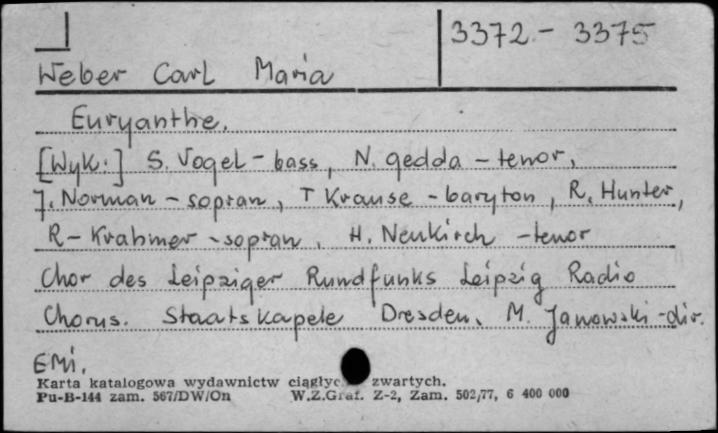 3372 - 3375
Weber Carl Maria
Euryanthe.
[Wyk.] S. Vogel - bass, N. gedda - tenor,
J. Norman - sopran, T Krause - baryton, R. Hunter,
R - Krahmer - sopran, H. Neukirch - tenor
Chor des Leipziger Rundfunks Leipzig Radio
Chorus. Staatskapele Dresden, M. Janowski - dir.
EMi.
Karta katalogowa wydawnictw ciągłyc zwartych.
Pu-B-144 zam. 567/DW/On W.Z.Graf. Z-2, Zam. 502/77, 6 400 000